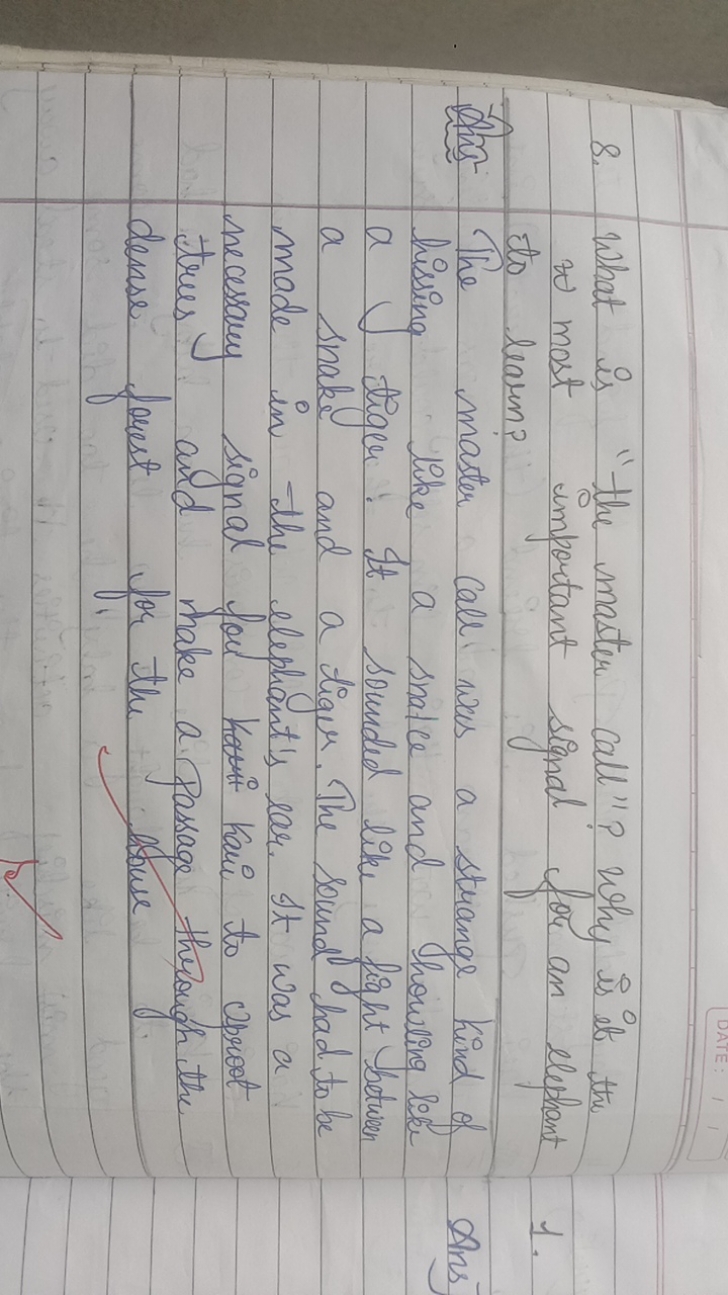 DATE: / /
8. What is "the master call"? Why is it the
most important signal for an elephant
to learn?
Ans
The master call was a strange kind of
hissing like a snake and howling like
a tiger. It sounded like a fight between
a snake and a tiger. The sound had to be
made in the elephant's ear. It was a
necessary signal for Kari to uproot
trees and make a Passage through the
dense forest for the
1.
Ans